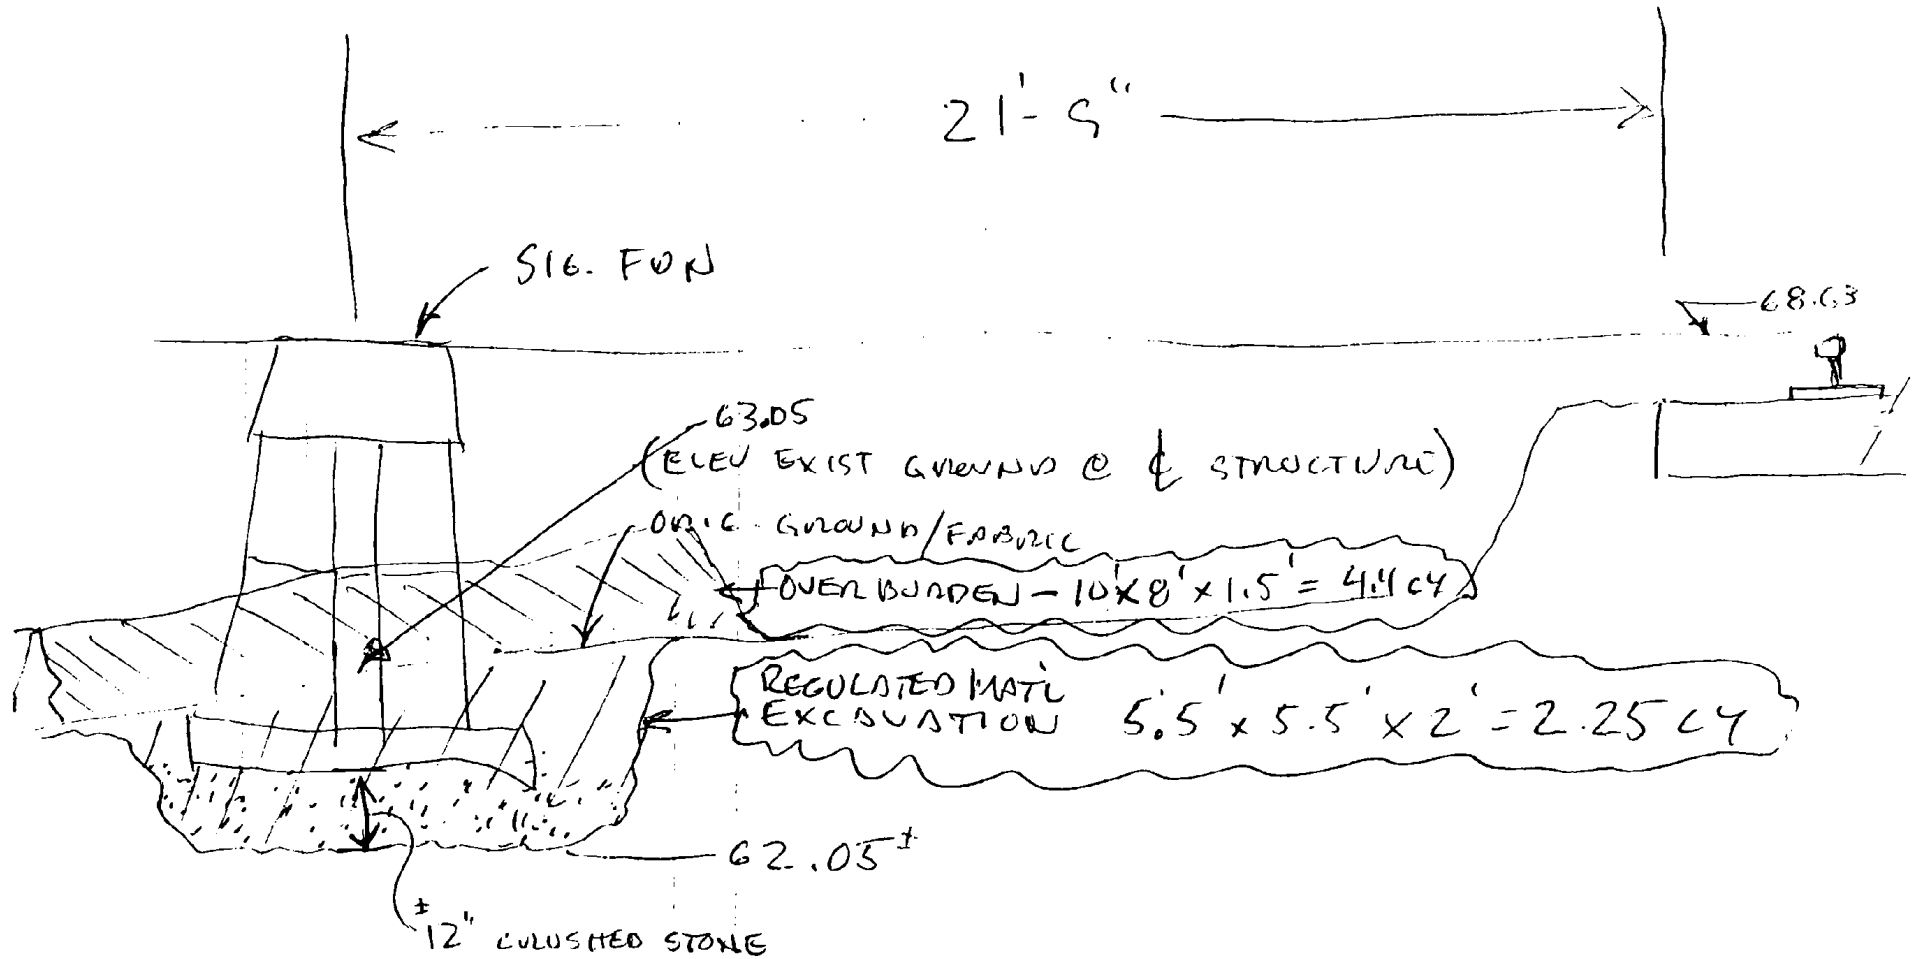 21'-9"
SIG. FDN
68.63
63.05
(ELEV EXIST GROUND @ ℄ STRUCTURE)
ORIG. GROUND/FABRIC
OVERBURDEN - 10'x8'x1.5' = 4.4 CY
REGULATED MAT'L
EXCAVATION 5.5' x 5.5' x 2' = 2.25 CY
62.05±
±12" CRUSHED STONE